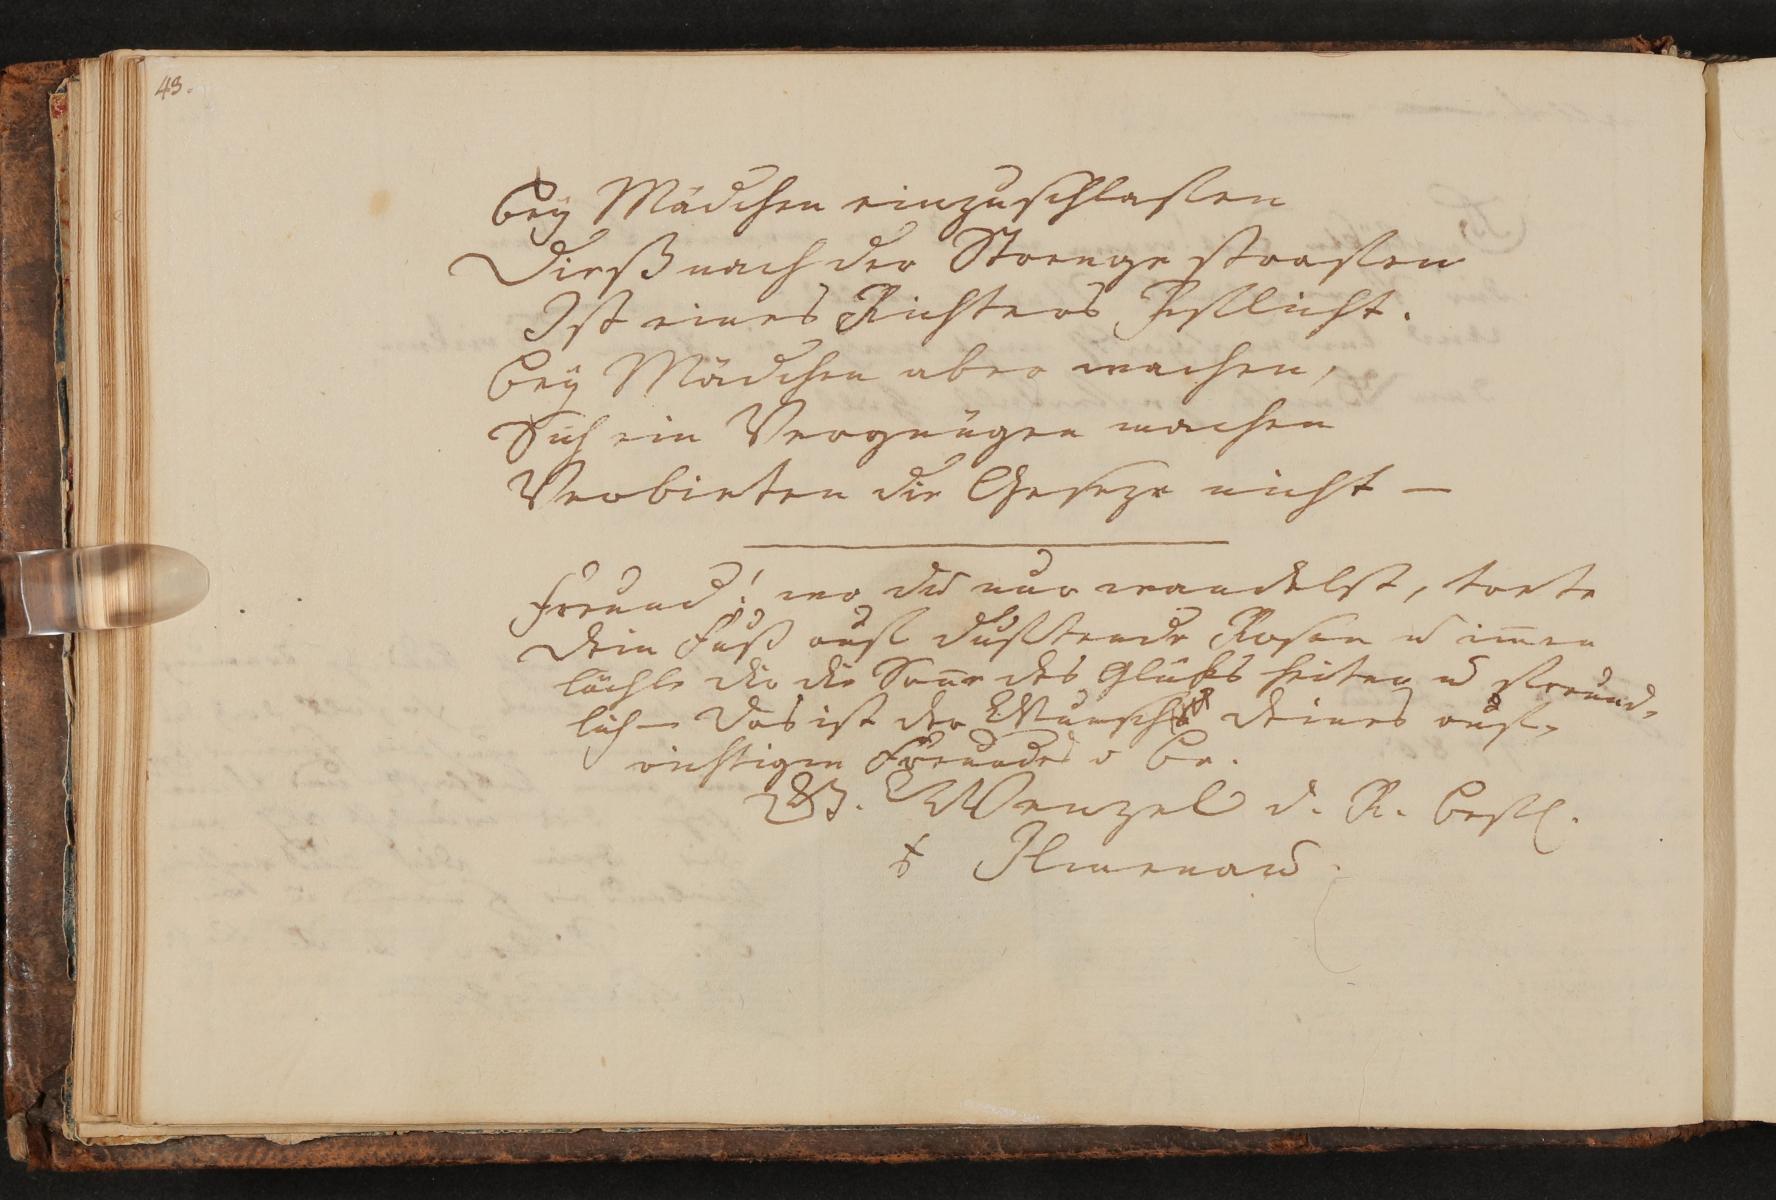 43.
Bey Mädchen einzuschlafen
Dieß nach der Strenge strafen
Ist eines Richters Pflicht.
Bey Mädchen aber wachen,
Sich ein Vergnügen machen
Verbieten die Geseze nicht —
Freund! wo du nur wandelst, trete
dein Fuß auf duftende Rosen u im̄er
lächle dir die Son̄e des Glüks heiter u freund-
lich — Das ist der Wunsch deines auf-
richtigen Freundes u Br.
Wenzel d. R. Befl.
Ilmenau.